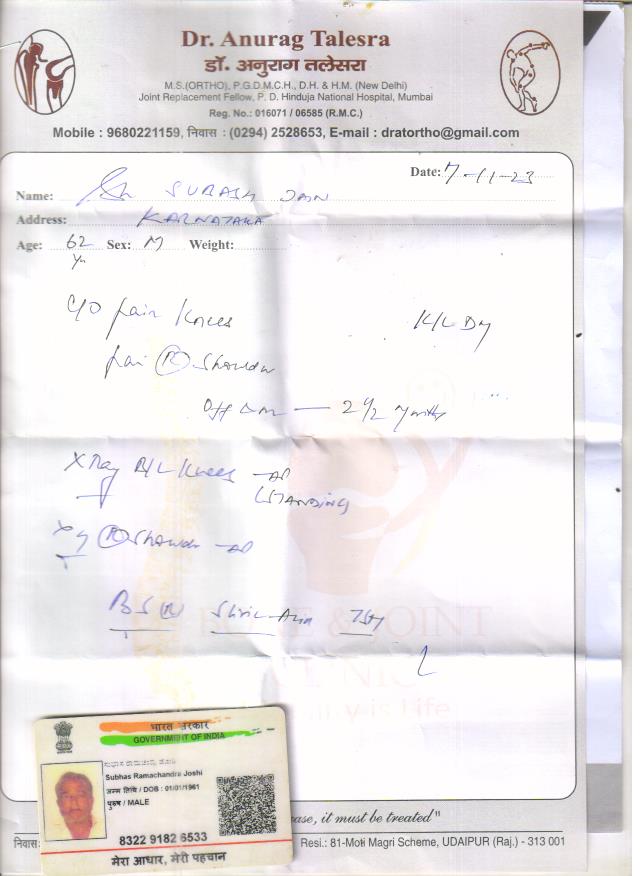 Dr. Anurag Talesra
डॉ. अनुराग तलेसरा
M.S.(ORTHO), P.G.D.M.C.H., D.H. & H.M. (New Delhi)
Joint Replacement Fellow, P. D. Hinduja National Hospital, Mumbai
Reg. No.: 016071 / 06585 (R.M.C.)
Mobile : 9680221159, निवास : (0294) 2528653, E-mail : dratortho@gmail.com
Date: 7-11-23
Name: SUBASH
Address: KARNATAKA
Age: 62 Yr Sex: M Weight:
C/O pain knees
pain (R) Shoulder
2 1/2 months
X Ray B/L Knees - AP
STANDING
(R) Shoulder - AP
BONE & JOINT
CLINIC
is Life
भारत सरकार
GOVERNMENT OF INDIA
Subhas Ramachandra Joshi
जन्म तिथि / DOB : 01/01/1961
पुरुष / MALE
8322 9182 6533
मेरा आधार, मेरी पहचान
it must be treated"
निवास:
Resi.: 81-Moti Magri Scheme, UDAIPUR (Raj.) - 313 001